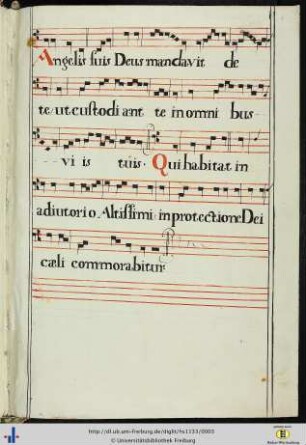 Angelis suis Deus mandavit de
te, ut custodiant te in omni bus
vi is tuis. Qui habitat in
adiutorio Altissimi in protectione Dei
cæli commorabitur.
http://dl.ub.uni-freiburg.de/diglit/hs1133/0005
© Universitätsbibliothek Freiburg